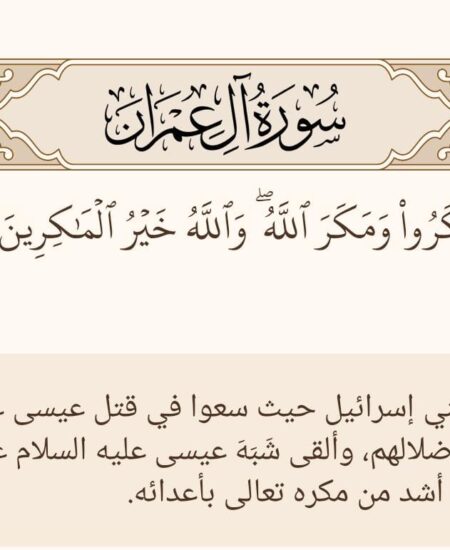 سُورَةُ آلِ عِمْرَانَ
كَرُوا۟ وَمَكَرَ ٱللَّهُ ۖ وَٱللَّهُ خَيْرُ ٱلْمَـٰكِرِينَ
ني إسرائيل حيث سعوا في قتل عيسى
ضلالهم، وألقى شَبَهَ عيسى عليه السلام
أشد من مكره تعالى بأعدائه.